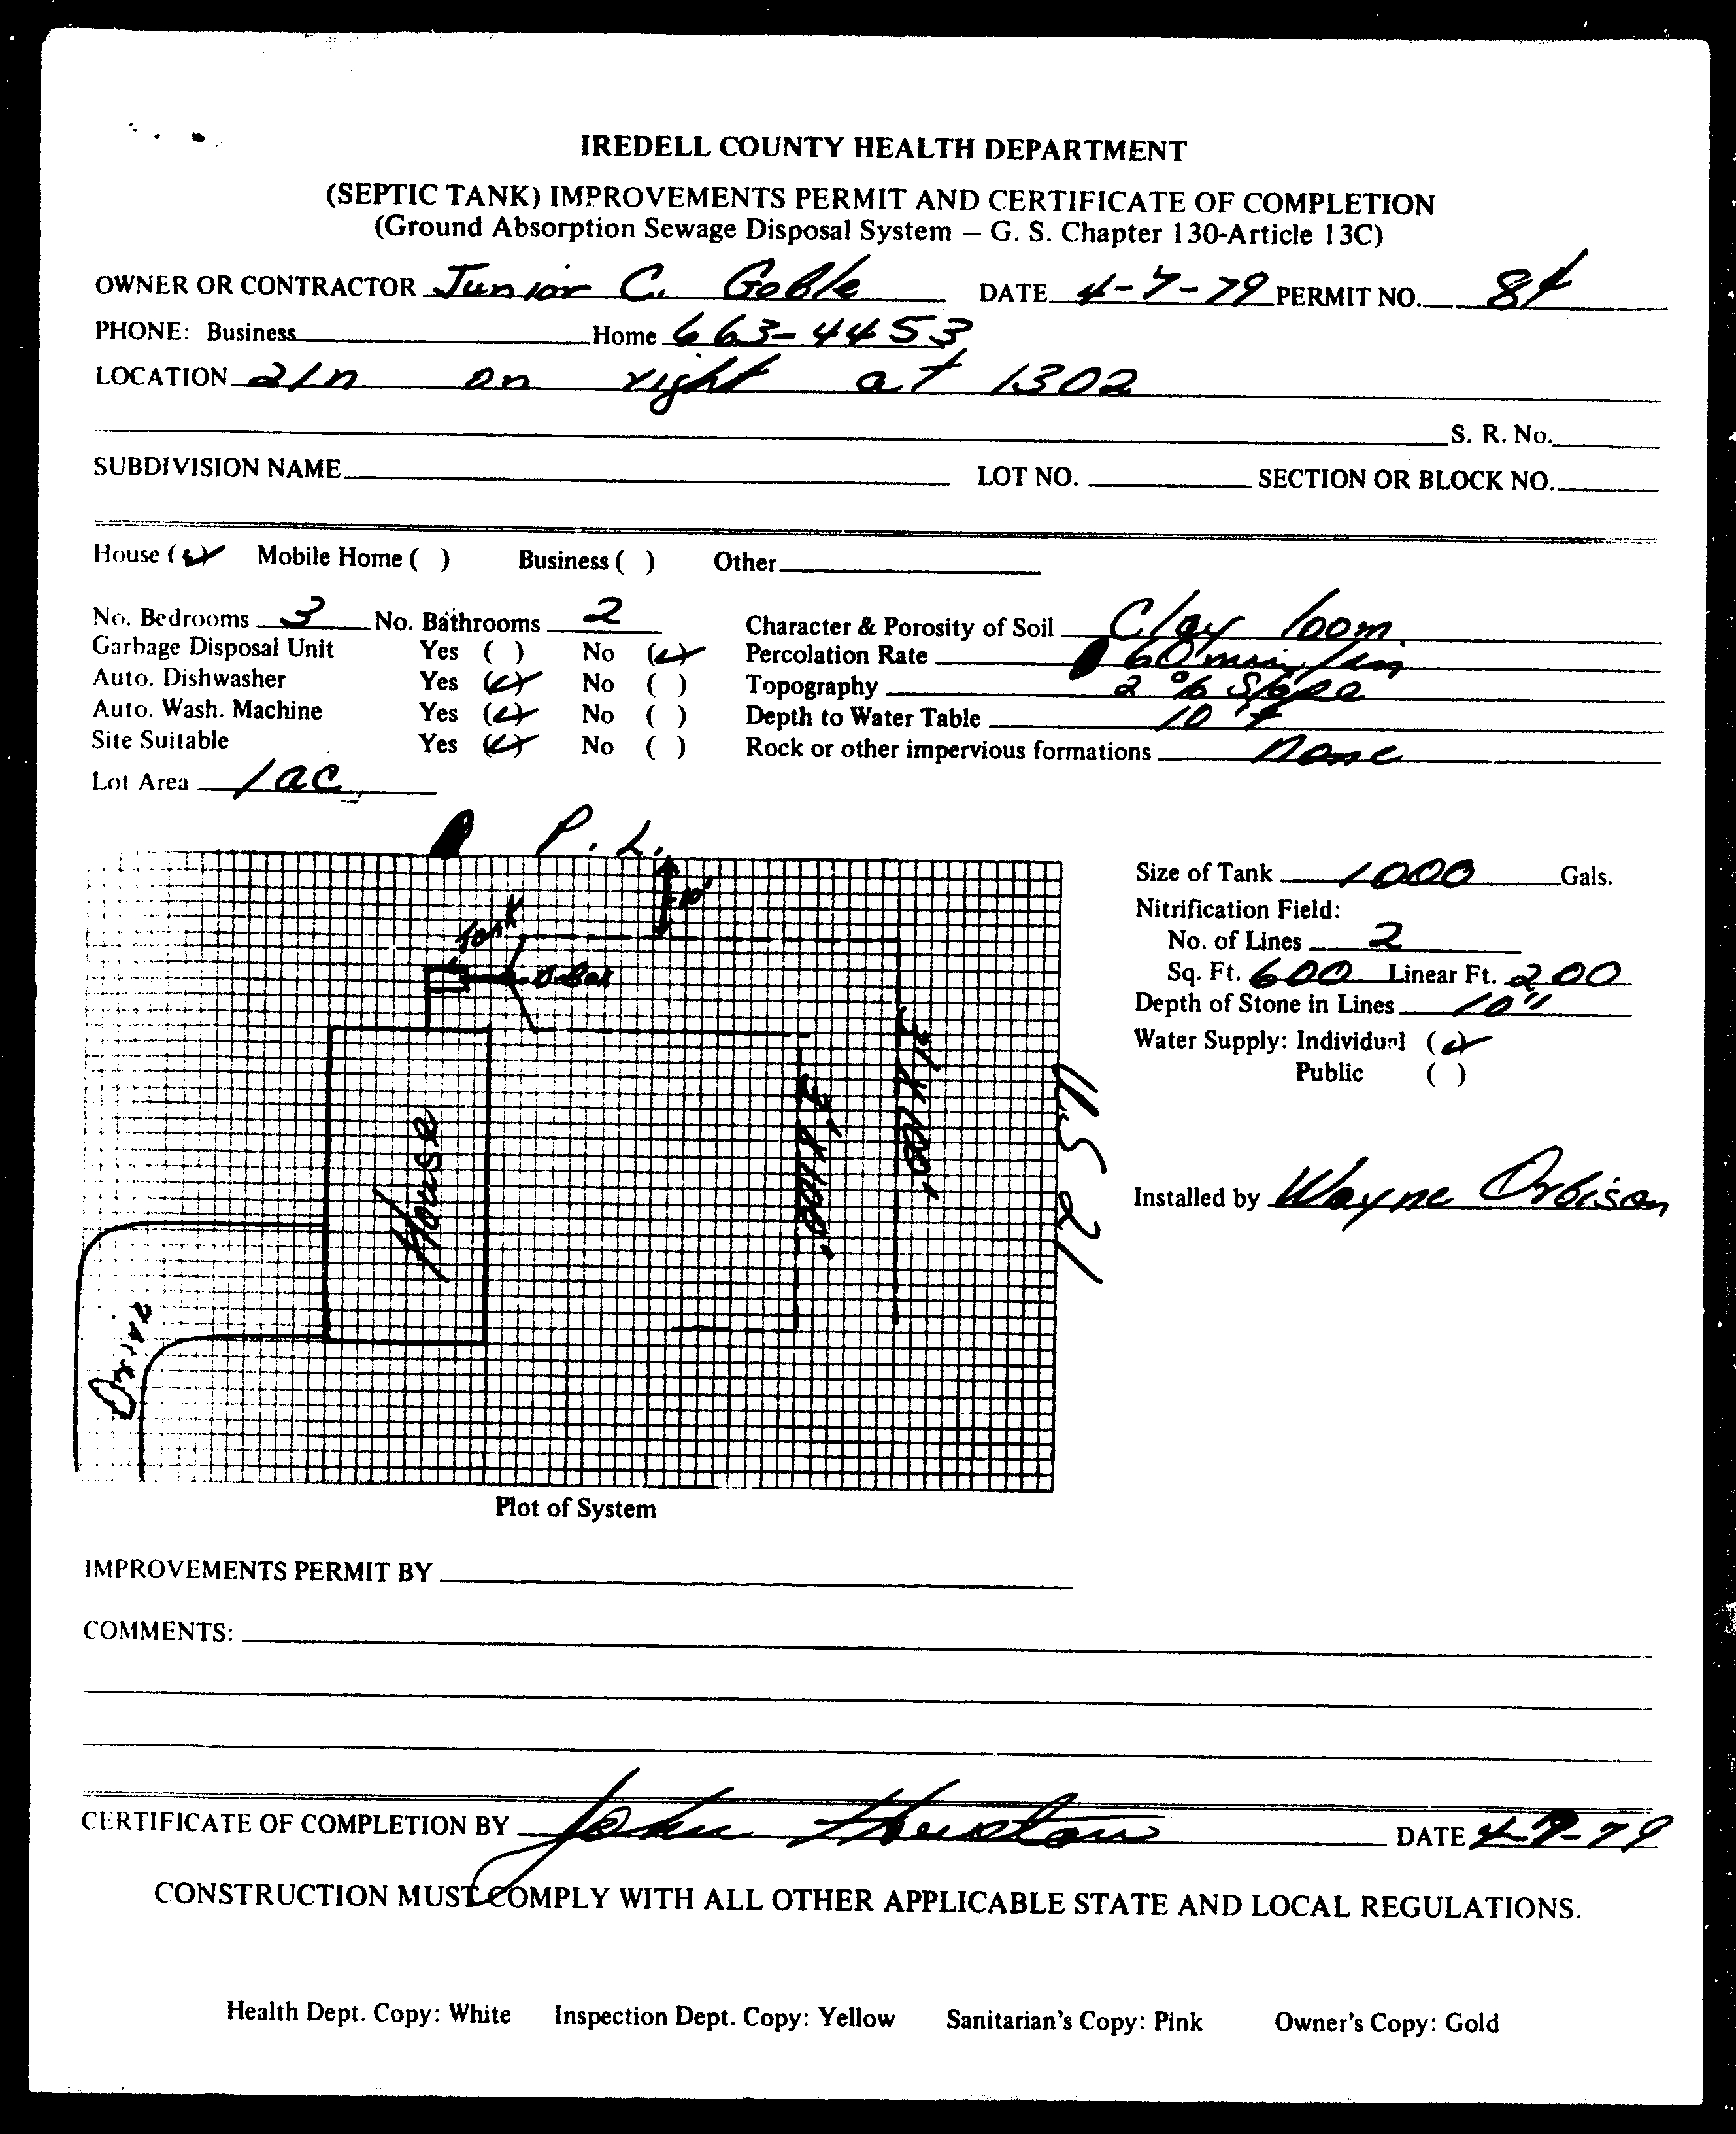 IREDELL COUNTY HEALTH DEPARTMENT
(SEPTIC TANK) IMPROVEMENTS PERMIT AND CERTIFICATE OF COMPLETION
(Ground Absorption Sewage Disposal System — G. S. Chapter 130-Article 13C)
OWNER OR CONTRACTOR Junior C. Goble DATE 4-7-79 PERMIT NO. 84
PHONE: Business Home 663-4453
LOCATION 21n on right at 1302
S. R. No.
SUBDIVISION NAME LOT NO. SECTION OR BLOCK NO.
House (✓) Mobile Home ( ) Business ( ) Other
No. Bedrooms 3 No. Bathrooms 2 Character & Porosity of Soil Clay loom
Garbage Disposal Unit Yes ( ) No (✓) Percolation Rate 60 min/in
Auto. Dishwasher Yes (✓) No ( ) Topography 2 % Slope
Auto. Wash. Machine Yes (✓) No ( ) Depth to Water Table 10'+
Site Suitable Yes (✓) No ( ) Rock or other impervious formations None
Lot Area 1 ac
P. L.
10'
Tank
D-Box
House
3' x 100'
3' x 100'
Drive
US 21
Size of Tank 1000 Gals.
Nitrification Field:
No. of Lines 2
Sq. Ft. 600 Linear Ft. 200
Depth of Stone in Lines 10"
Water Supply: Individual (✓)
Public ( )
Installed by Wayne Orbison
Plot of System
IMPROVEMENTS PERMIT BY
COMMENTS:
CERTIFICATE OF COMPLETION BY John DATE 4-9-79
CONSTRUCTION MUST COMPLY WITH ALL OTHER APPLICABLE STATE AND LOCAL REGULATIONS.
Health Dept. Copy: White Inspection Dept. Copy: Yellow Sanitarian's Copy: Pink Owner's Copy: Gold